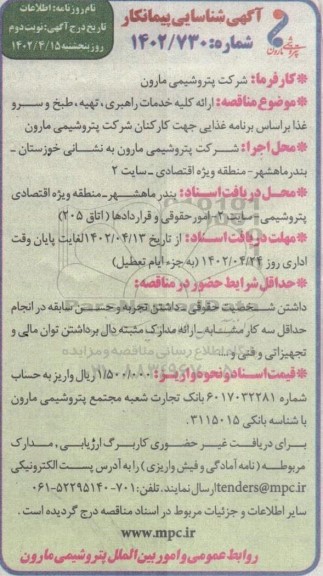 نام روزنامه: اطلاعات
تاریخ درج آگهی: نوبت دوم
روز پنجشنبه ۱۴۰۲/۴/۱۵
آگهی شناسایی پیمانکار
شماره: ۱۴۰۲/۷۳۰
پتروشیمی مارون
*کارفرما: شرکت پتروشیمی مارون
*موضوع مناقصه: ارائه کلیه خدمات راهبری، تهیه، طبخ و سرو
غذا براساس برنامه غذایی جهت کارکنان شرکت پتروشیمی مارون
*محل اجرا: شرکت پتروشیمی مارون به نشانی خوزستان -
بندرماهشهر- منطقه ویژه اقتصادی - سایت ۲
*محل دریافت اسناد: بندر ماهشهر - منطقه ویژه اقتصادی
پتروشیمی - سایت ۲- امور حقوقی و قراردادها (اتاق ۲۰۵)
*مهلت دریافت اسناد: از تاریخ ۱۴۰۲/۰۴/۱۳ لغایت پایان وقت
اداری روز ۱۴۰۲/۰۴/۲۴ (به جزء ایام تعطیل)
*حداقل شرایط حضور در مناقصه:
داشتن شخصیت حقوقی - داشتن تجربه و حسن سابقه در انجام
حداقل سه کار مشابه - ارائه مدارک مثبته دال برداشتن توان مالی و
تجهیزاتی و فنی و...
*قیمت اسناد و نحوه واریز: ۱/۵۰۰/۰۰۰ ریال واریز به حساب
شماره ۶۰۱۷۰۳۲۲۸۱ بانک تجارت شعبه مجتمع پتروشیمی مارون
با شناسه بانکی ۳۱۱۵۰۱۵.
برای دریافت غیر حضوری کاربرگ ارزیابی، مدارک
مربوطه (نامه آمادگی و فیش واریزی) را به آدرس پست الکترونیکی
tenders@mpc.ir ارسال نمایند. تلفن: ۷۰۱-۵۲۲۹۵۱۴۰-۰۶۱
سایر اطلاعات و جزئیات مربوط در اسناد مناقصه درج گردیده است.
www.mpc.ir
روابط عمومی و امور بین الملل پتروشیمی مارون